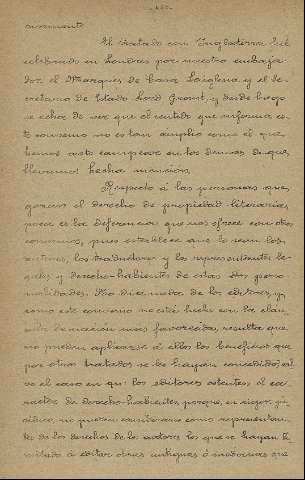 mamente.
El tratado con Inglaterra fué
celebrado en Londres por nuestro embaja-
dor el Marques de Casa Laiglesia y el Se-
cretario de Estado Lord Granst, y desde luego
se echa de ver que el sentido que informa es-
te convenio no es tan amplio como el que
hemos visto campear en los demas de que
llevamos hecha mención.
Respecto á las personas que
gozan el derecho de propiedad literaria,
poca es la diferencia que nos ofrece con otros
convenios, pues establece que lo sean los
autores, los traductores y los representantes le-
gales y derecho-habientes de estas dos perso-
nalidades. No dice nada de los editores, y,
como este convenio no está hecho con la cláu-
sula de nación mas favorecida, resulta que
no pueden aplicarse á ellos los beneficios que
por otros tratados se les hayan concedido, sal-
vo el caso en que los editores ostenten el ca-
racter de derecho-habientes, porque, en rigor ju-
rídico, no pueden considerarse como representan-
tes de los derechos de los autores los que se hayan li-
mitado á editar obras antiguas ó modernas que